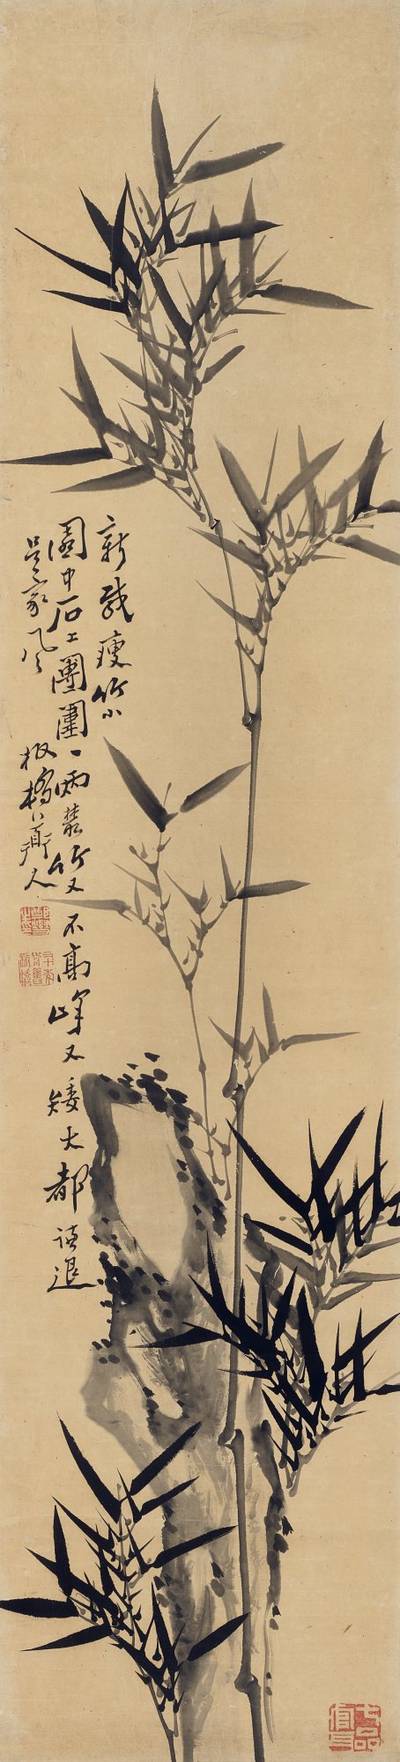 新栽瘦竹小
園中石上團圞一兩叢竹又不高峰又矮大都謙退
是家風
板橋道人
七品官耳